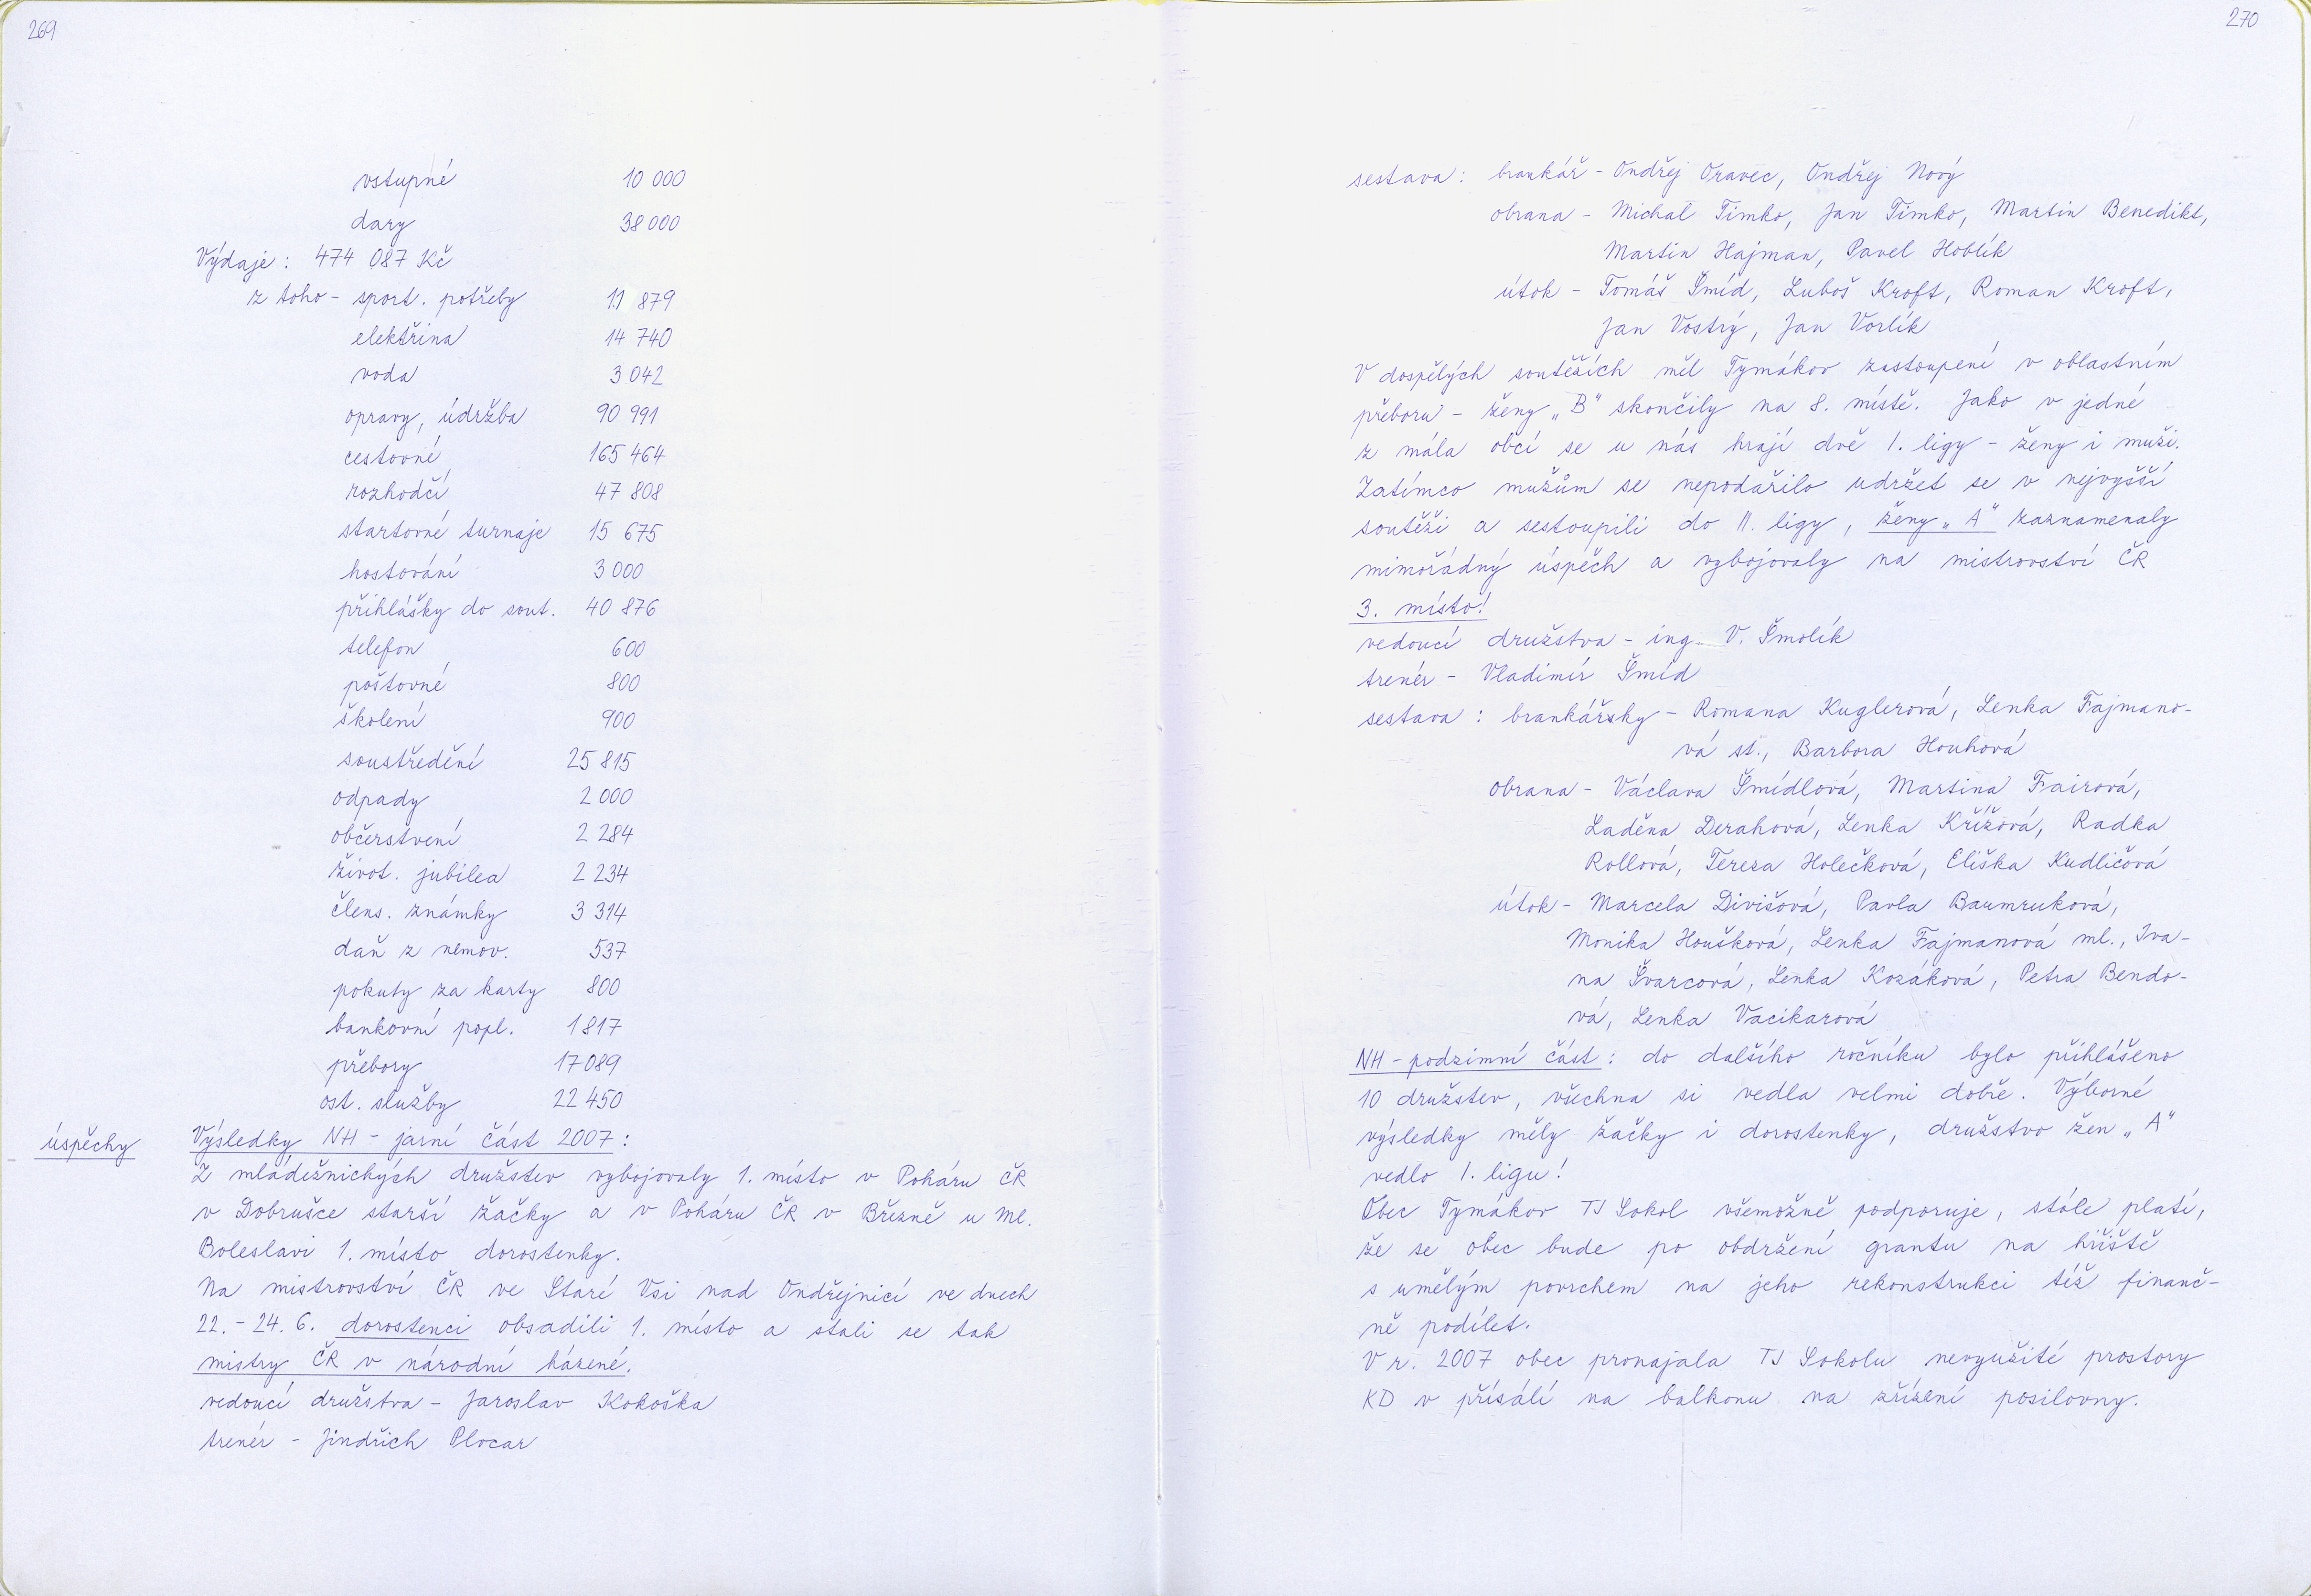 269
vstupné 10 000
dary 38 000
Výdaje: 474 087 Kč
z toho - sport. potřeby 11 879
elektřina 14 740
voda 3 042
opravy, údržba 90 991
cestovné 165 464
rozhodčí 47 808
startovné turnaje 15 675
hostování 3 000
přihlášky do sout. 40 876
telefon 600
poštovné 800
školení 900
soustředění 25 815
odpady 2 000
občerstvení 2 284
život. jubilea 2 234
člens. známky 3 314
daň z nemov. 537
pokuty za karty 800
bankovní popl. 1 817
přebory 17 089
ost. služby 22 450
úspěchy
Výsledky NH - jarní část 2007:
Z mládežnických družstev vybojovaly 1. místo v Poháru ČR
v Dobrušce starší žačky a v Poháru ČR v Březně u Ml.
Boleslavi 1. místo dorostenky.
Na mistrovství ČR ve Staré Vsi nad Ondřejnicí ve dnech
22. - 24. 6. dorostenci obsadili 1. místo a stali se tak
mistry ČR v národní házené.
vedoucí družstva - Jaroslav Kokoška
trenér - Jindřich Plocar
270
sestava: brankář - Ondřej Oravec, Ondřej Nový
obrana - Michal Timko, Jan Timko, Martin Benedikt,
Martin Hajman, Pavel Hoblík
útok - Tomáš Šmíd, Luboš Kroft, Roman Kroft,
Jan Vostrý, Jan Vorlík
V dospělých soutěžích měl Tymákov zastoupení v oblastním
přeboru - ženy „B" skončily na 8. místě. Jako v jedné
z mála obcí se u nás hrají dvě I. ligy - ženy i muži.
Zatímco mužům se nepodařilo udržet se v nejvyšší
soutěži a sestoupili do II. ligy, ženy „A" zaznamenaly
mimořádný úspěch a vybojovaly na mistrovství ČR
3. místo!
vedoucí družstva - ing. V. Šmolík
trenér - Vladimír Šmíd
sestava: brankářky - Romana Kuglerová, Lenka Fajmano-
vá st., Barbora Houhová
obrana - Václava Šmídlová, Martina Fairová,
Laděna Derahová, Lenka Křížová, Radka
Rollová, Tereza Holečková, Eliška Kudličová
útok - Marcela Divišová, Pavla Baumruková,
Monika Houšková, Lenka Fajmanová ml., Iva-
na Švarcová, Lenka Kozáková, Petra Bendo-
vá, Lenka Vacikarová
NH - podzimní část: do dalšího ročníku bylo přihlášeno
10 družstev, všechna si vedla velmi dobře. Výborné
výsledky měly žačky i dorostenky, družstvo žen „A"
vedlo I. ligu!
Obec Tymákov TJ Sokol všemožně podporuje, stále platí,
že se obec bude po obdržení grantu na hřiště
s umělým povrchem na jeho rekonstrukci též finanč-
ně podílet.
V r. 2007 obec pronajala TJ Sokolu nevyužité prostory
KD v přísálí na balkonu na zřízení posilovny.